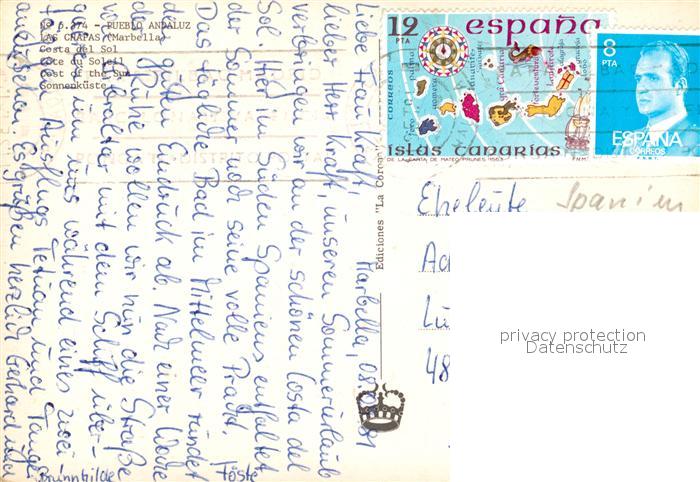 No 6.374 - PUEBLO ANDALUZ
LAS CHAPAS (Marbella)
Costa del Sol
Côte du Soleil
Cost of the Sun
Sonnenküste
12
PTA
españa
CORREOS
islas canarias
DE LA CARTA DE MATEO PRUNES 1563
FNMT
8
PTA
ESPAÑA
CORREOS
Ediciones "La Corona"
Marbella, 08.
Liebe Frau Kraft,
lieber Herr Kraft, unseren Sommerurlaub
verbringen wir an der schönen Costa del
Sol. Hier im Süden Spaniens entfaltet
der Sommer seine volle Pracht.
Das tägliche Bad im Mittelmeer rundet
den guten Eindruck ab. Nach einer Woche
der Ruhe wollen wir nun die Straße
von Gibraltar mit dem Schiff über-
queren, um uns während eines zwei
Ausflugs Tetuan und Tanger
anzusehen. Es grüßen herzlich Gerhard und
Brunnhilde
Höste
Eheleute
Spanien
48
privacy protection
Datenschutz